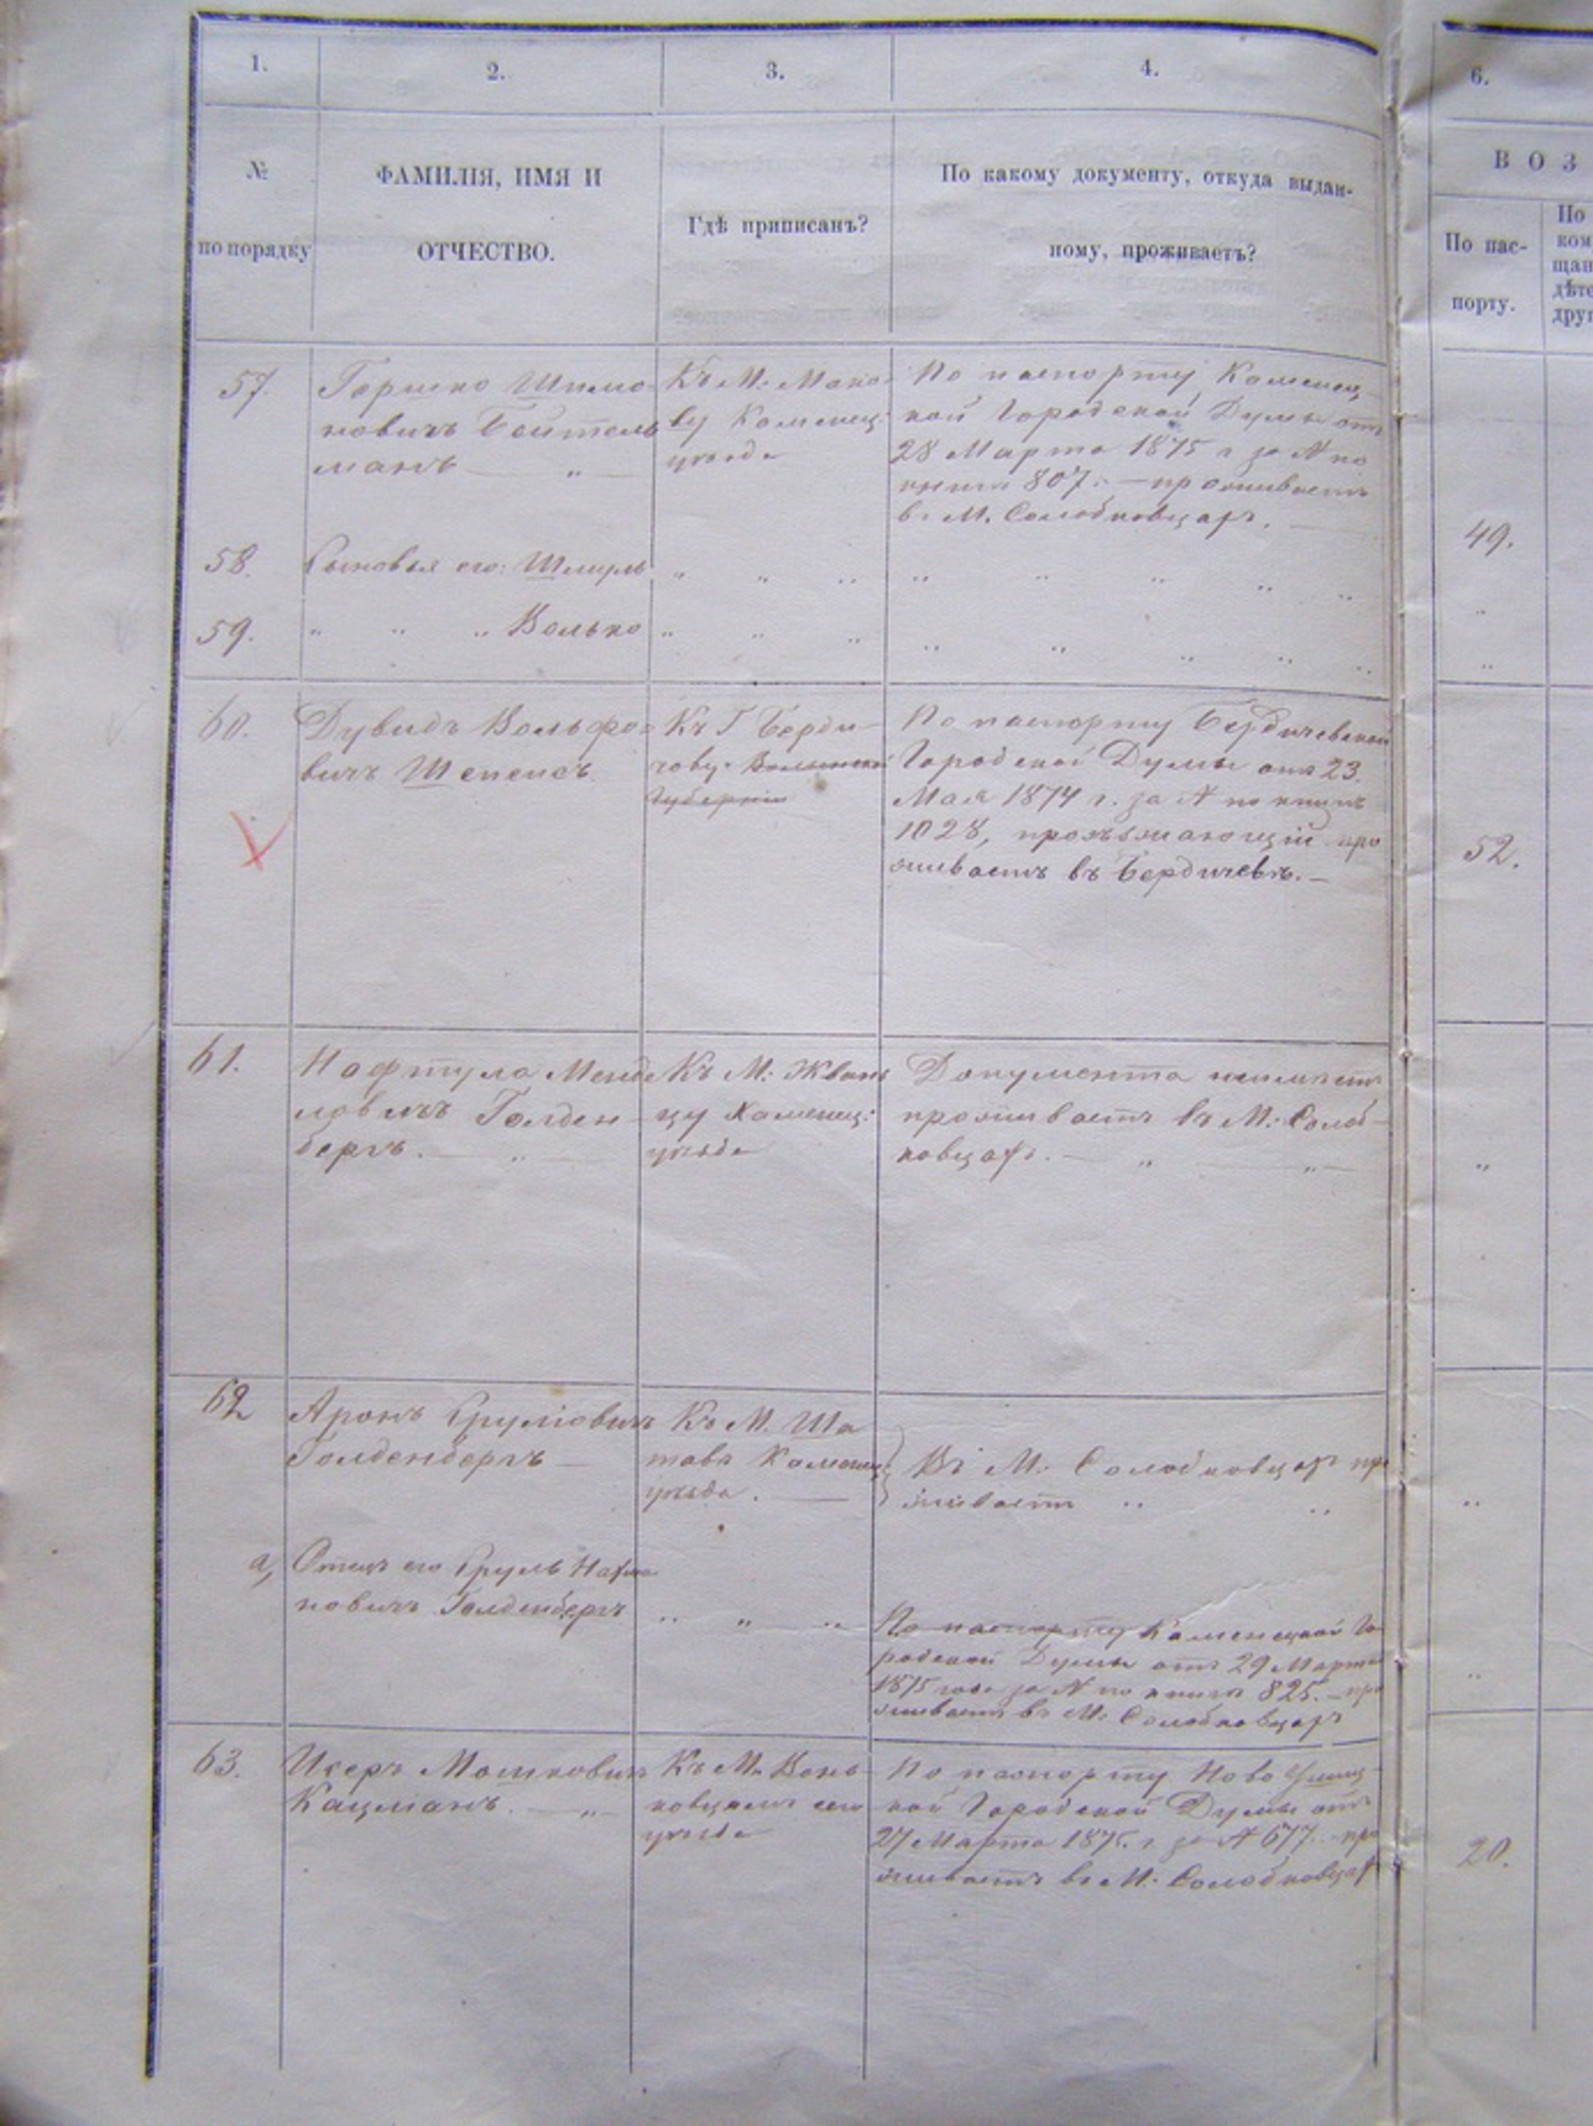 1. 2. 3. 4. 6.
№ по порядку
ФАМИЛІЯ, ИМЯ И
ОТЧЕСТВО.
Гдѣ приписанъ?
По какому документу, откуда выдан-
ному, проживаетъ?
В О З
По пас-
порту.
По
ком
щан
дѣте
друг
57. Гершко Шимо-
новичъ Бейтель
манъ — „ —
Къ М: Мако-
ву Каменец:
уѣзда
По паспорту Каменец,
кой Городской Думы отъ
28 Марта 1875 г за N по
книги 807. — проживаетъ
въ М. Солобковцахъ. —
49.
58. Сыновья его: Шмуль „ „ „ „ „ „ „ „
„
59. „ „ „ Волько „ „ „ „ „ „ „ „
„
60. Дувидъ Вольфо-
вичъ Шепенсъ
Къ Г Берди-
чову Волынской
Губерніи
По паспорту Бердичевской
Городской Думы отъ 23.
Мая 1874 г. за N по книгѣ
1028, проѣзжающій про
живаетъ въ Бердичевѣ. —
52.
61. Нафтула Менде
левичъ Голден-
бергъ. — „ —
Къ М: Жван
цу Каменец:
уѣзда
Документа неимѣетъ
проживаетъ въ М: Солоб-
ковцахъ. — „ — „ —
„
62 Аронъ Сруліовичъ
Голденбергъ —
Къ М. Ша
тава Каменец:
уѣзда. —
Въ М: Солобковцахъ про
живаетъ „ „
„
а, Отецъ его Сруль Нахма
новичъ Голденбергъ
„ „ „
По паспорту Каменецкой Го-
родской Думы отъ 29 Марта
1875 года за N по книги 825. — про
живаетъ въ М: Солобковцахъ
„
63. Исеръ Мошковичъ
Кацманъ. — „ —
Къ М. Вонь-
ковцамъ сего
уѣзда
По паспорту Ново Ушиц-
кой Городской Думы отъ
27 Марта 1875. г. за N 677. — про
живаетъ въ М: Солобковцахъ
20.